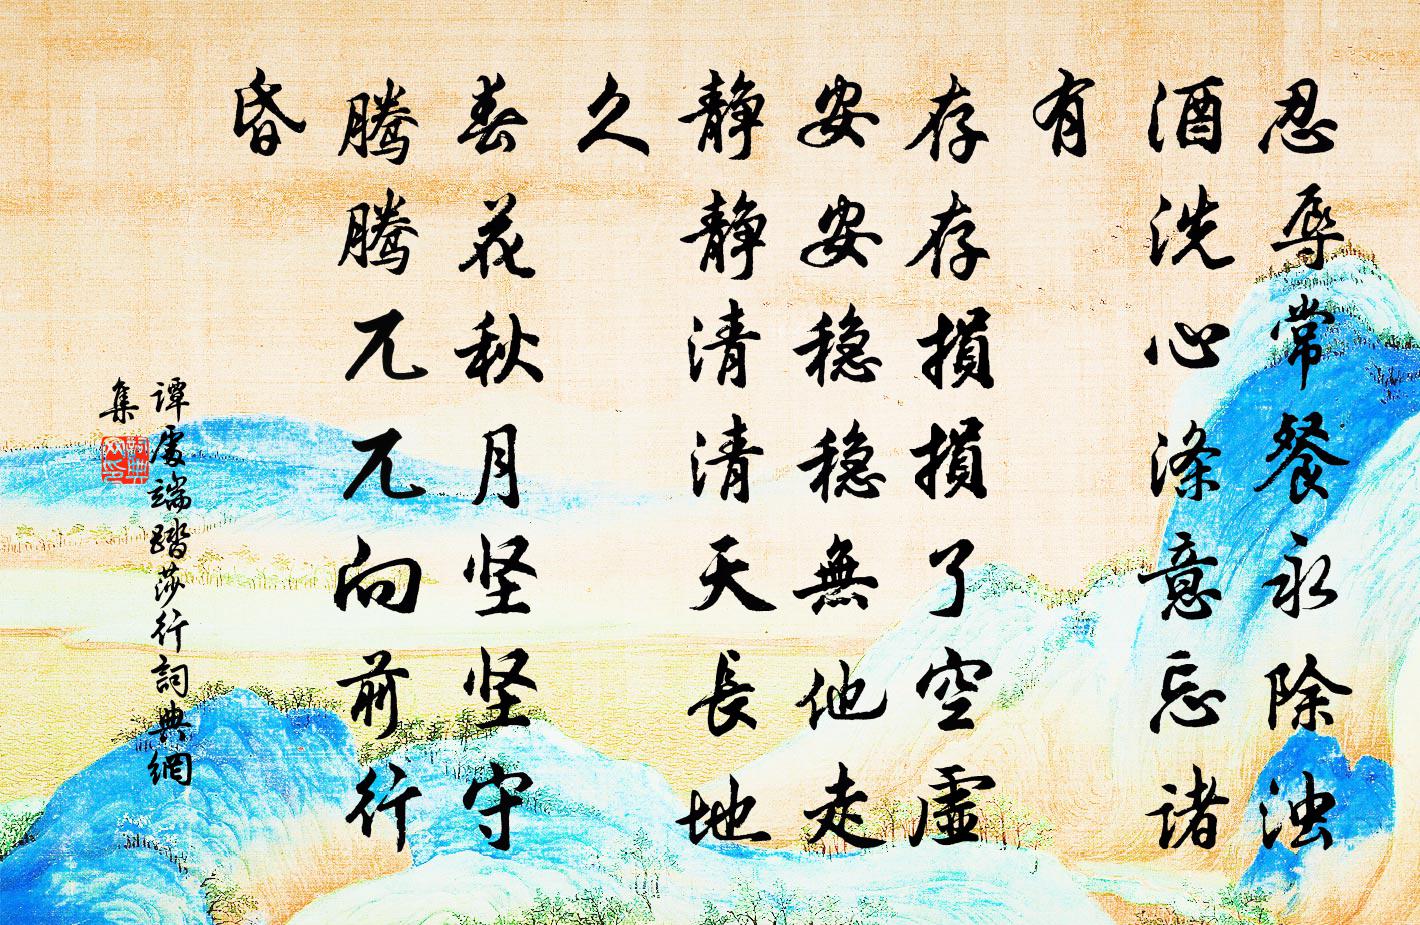 忍辱常餐永除浊
酒洗心涤意忘诸
有
存存損損了空虛
安安稳稳無他走
静静清清天長地
久
春花秋月坚坚守
腾腾兀兀向前行
昏
谭處端踏莎行詞典網
集